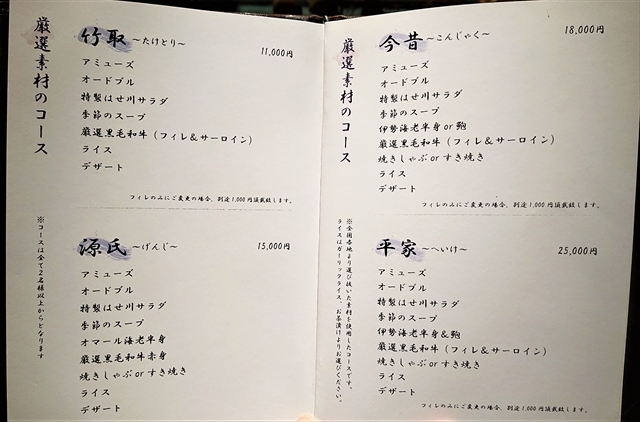 厳選素材のコース
竹取 ～たけとり～ 11,000円
アミューズ
オードブル
特製はせ川サラダ
季節のスープ
厳選黒毛和牛（フィレ&サーロイン）
ライス
デザート
フィレのみにご変更の場合、別途1,000円頂戴致します。
源氏 ～げんじ～ 15,000円
アミューズ
オードブル
特製はせ川サラダ
季節のスープ
オマール海老半身
厳選黒毛和牛赤身
焼きしゃぶorすき焼き
ライス
デザート
※コースは全て2名様以上からとなります
厳選素材のコース
今昔 ～こんじゃく～ 18,000円
アミューズ
オードブル
特製はせ川サラダ
季節のスープ
伊勢海老半身or鮑
厳選黒毛和牛（フィレ&サーロイン）
焼きしゃぶorすき焼き
ライス
デザート
フィレのみにご変更の場合、別途1,000円頂戴致します。
平家 ～へいけ～ 25,000円
アミューズ
オードブル
特製はせ川サラダ
季節のスープ
伊勢海老半身&鮑
厳選黒毛和牛（フィレ&サーロイン）
焼きしゃぶorすき焼き
ライス
デザート
フィレのみにご変更の場合、別途1,000円頂戴致します。
※全国各地より選び抜いた素材を使用したコースです。
ライスはガーリックライス、お茶漬けよりお選びください。